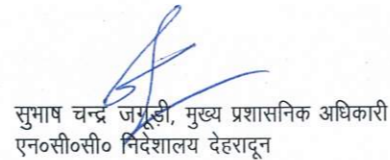 सुभाष चन्द्र जगूड़ी, मुख्य प्रशासनिक अधिकारी
एन०सी०सी० निदेशालय देहरादून